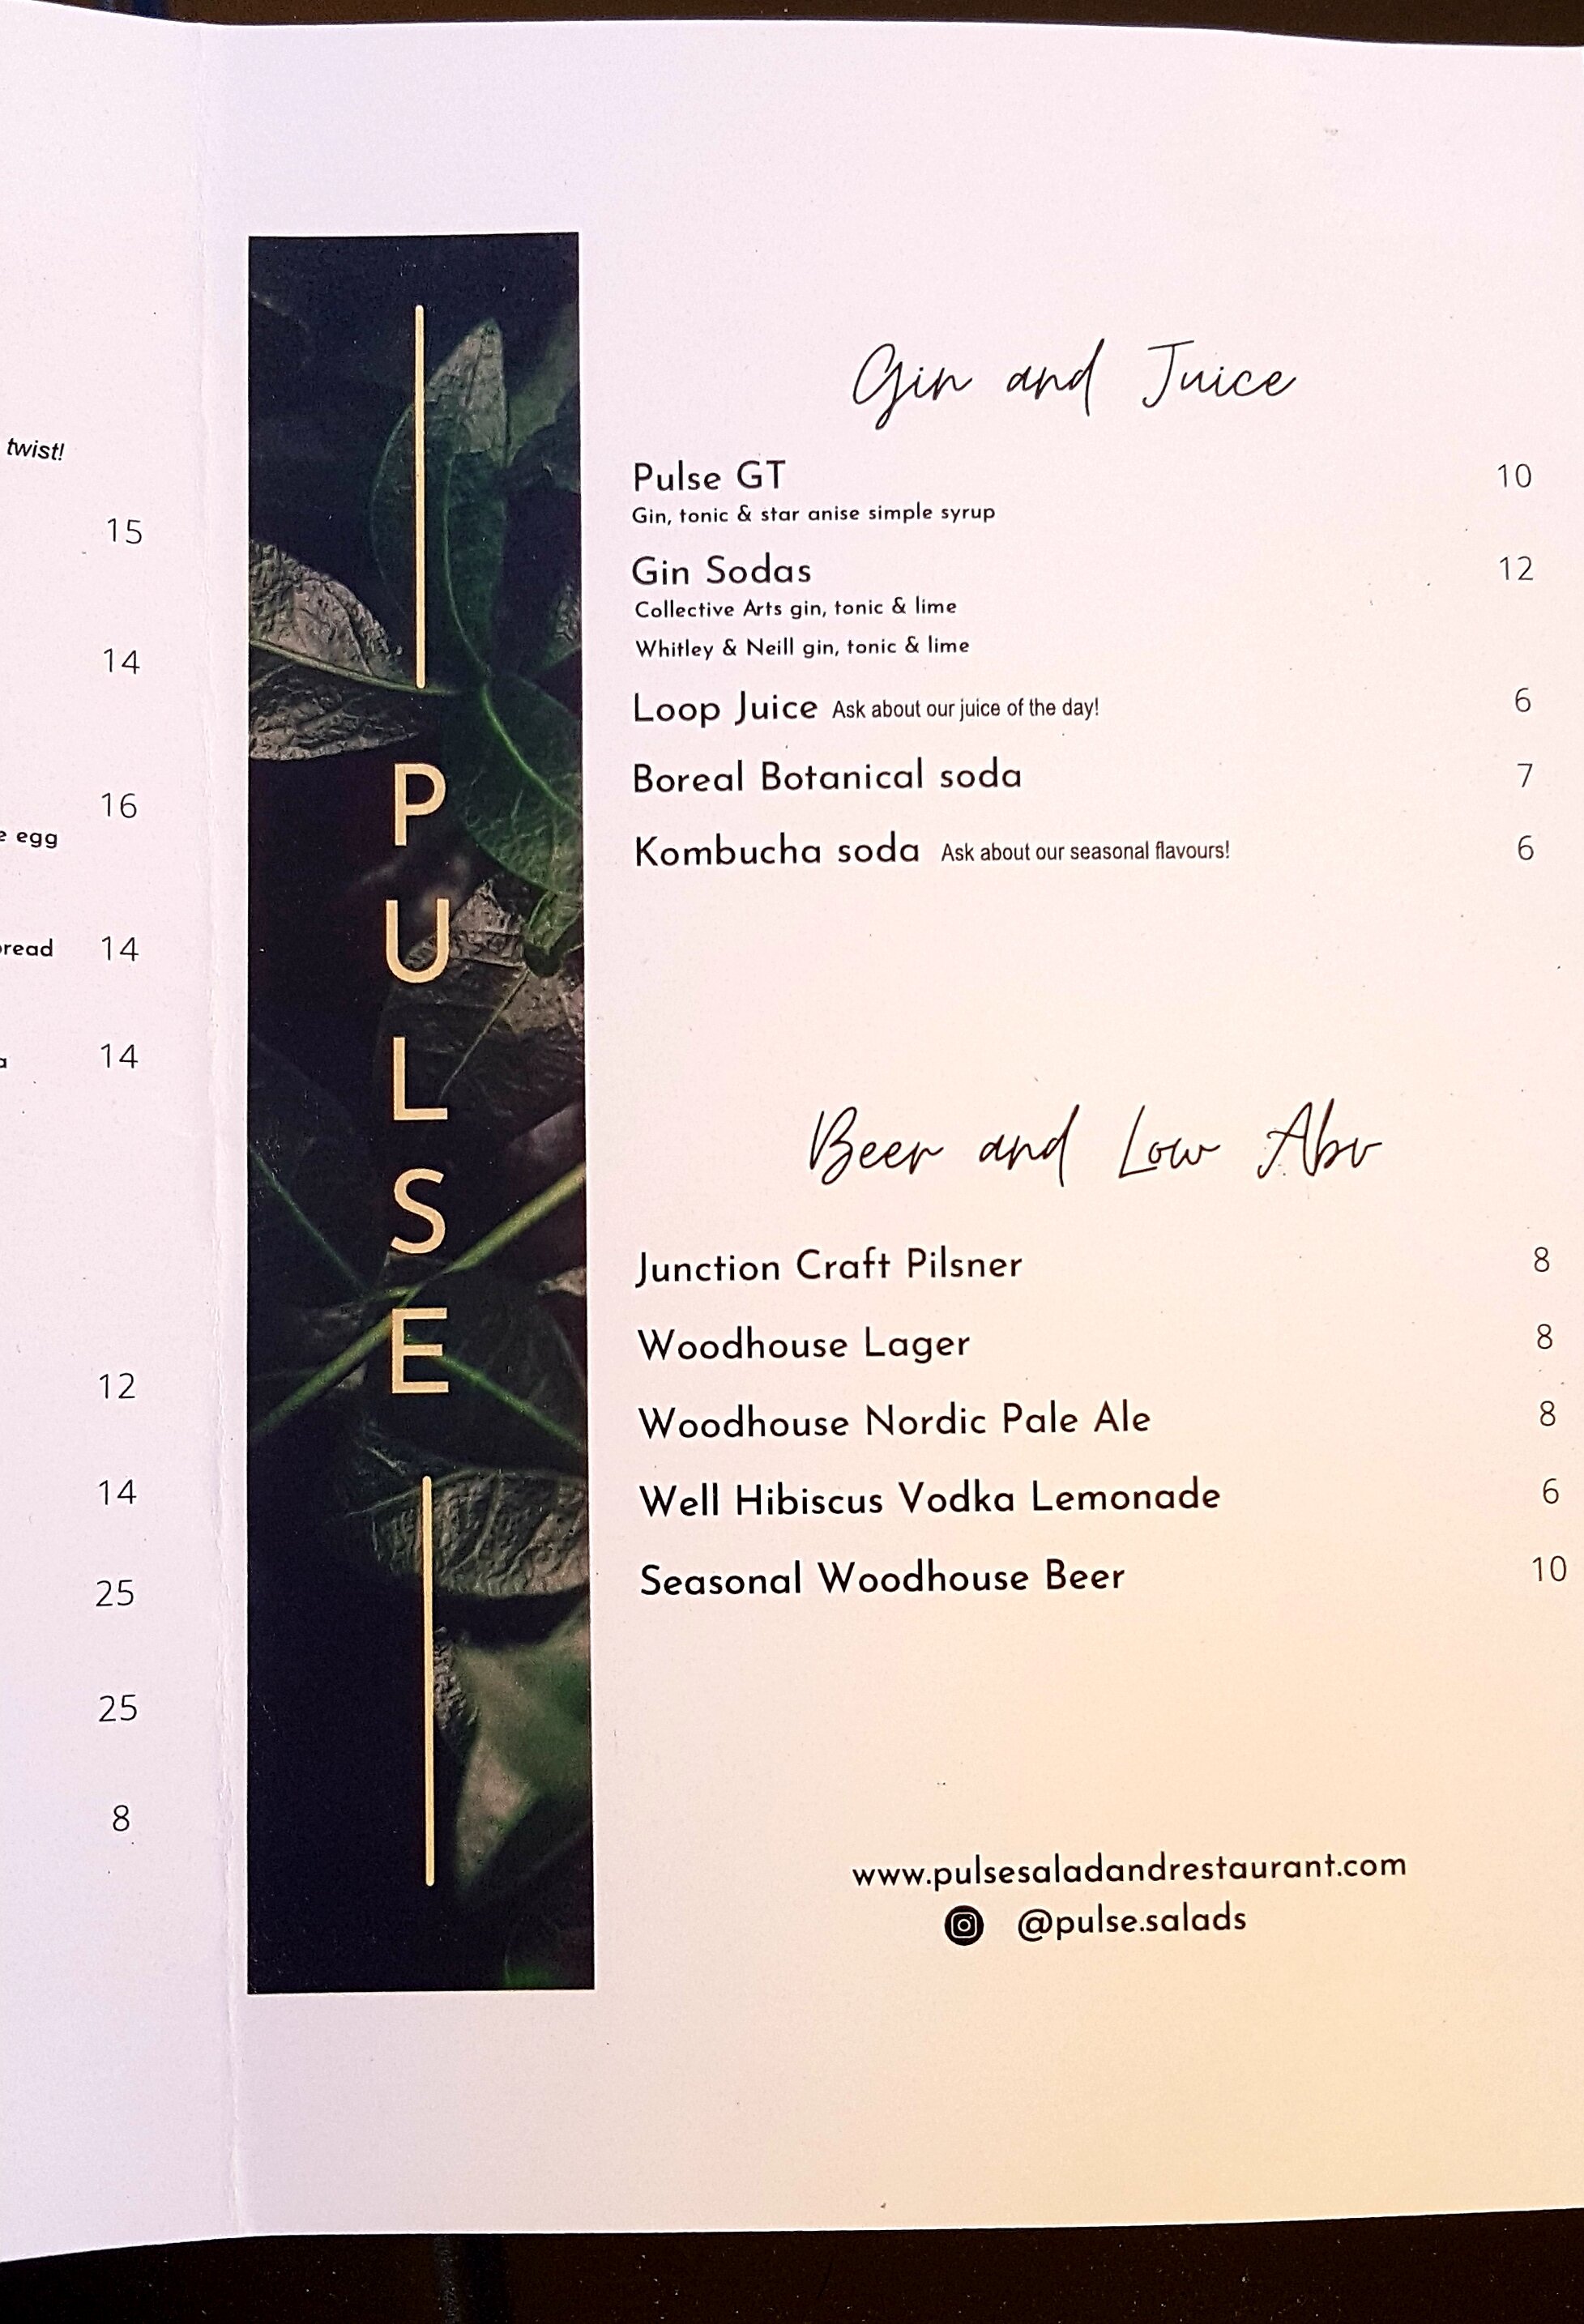 twist!
15
14
16
egg
14
14
12
14
25
25
8
PULSE
Gin and Juice
Pulse GT 10
Gin, tonic & star anise simple syrup
Gin Sodas 12
Collective Arts gin, tonic & lime
Whitley & Neill gin, tonic & lime
Loop Juice Ask about our juice of the day! 6
Boreal Botanical soda 7
Kombucha soda Ask about our seasonal flavours! 6
Beer and Low Abv
Junction Craft Pilsner 8
Woodhouse Lager 8
Woodhouse Nordic Pale Ale 8
Well Hibiscus Vodka Lemonade 6
Seasonal Woodhouse Beer 10
www.pulsesaladandrestaurant.com
@pulse.salads